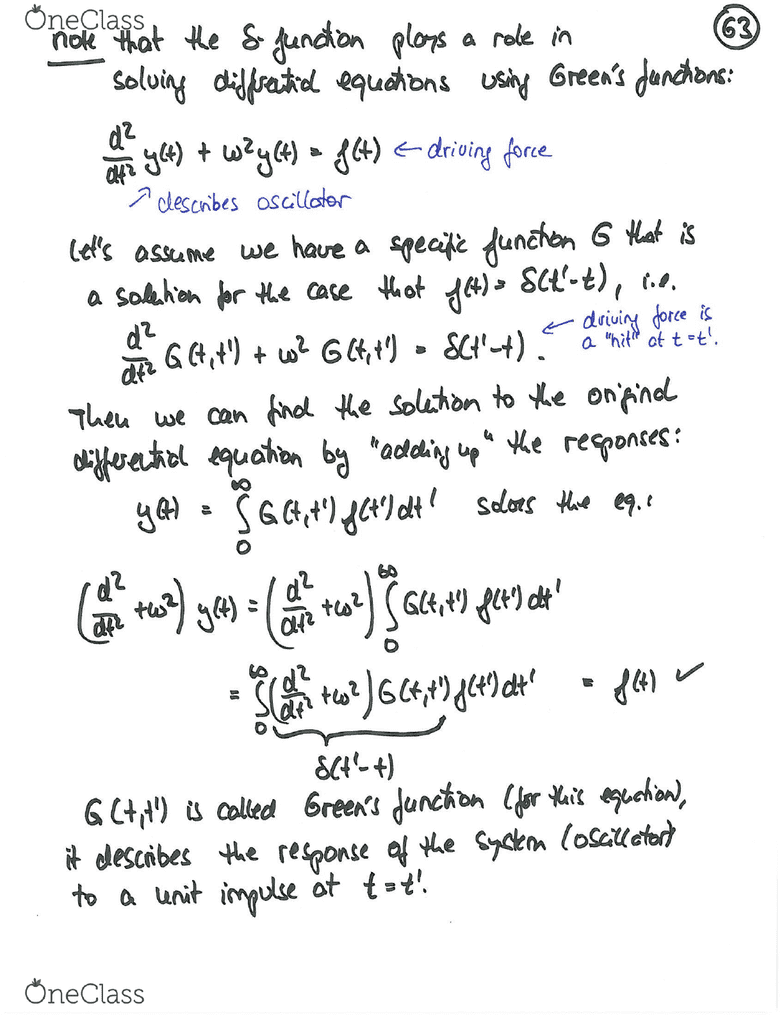 OneClass
note that the δ-function plays a role in
63
solving diffratial equations using Green's functions:
d²/dt² y(t) + ω² y(t) = f(t) ← driving force
↗ describes oscillator
Let's assume we have a specific function G that is
a solution for the case that f(t) = δ(t'-t), i.e.
d²/dt² G(t,t') + ω² G(t,t') = δ(t'-t). ← driving force is
a "hit" at t=t'.
Then we can find the solution to the original
differential equation by "adding up" the responses:
y(t) = ∫₀^∞ G(t,t') f(t') dt' solves the eq.:
(d²/dt² + ω²) y(t) = (d²/dt² + ω²) ∫₀^∞ G(t,t') f(t') dt'
= ∫₀^∞ (d²/dt² + ω²) G(t,t') f(t') dt' = f(t) ✓
δ(t'-t)
G(t,t') is called Green's function (for this equation),
it describes the response of the system (oscillator)
to a unit impulse at t=t'.
OneClass